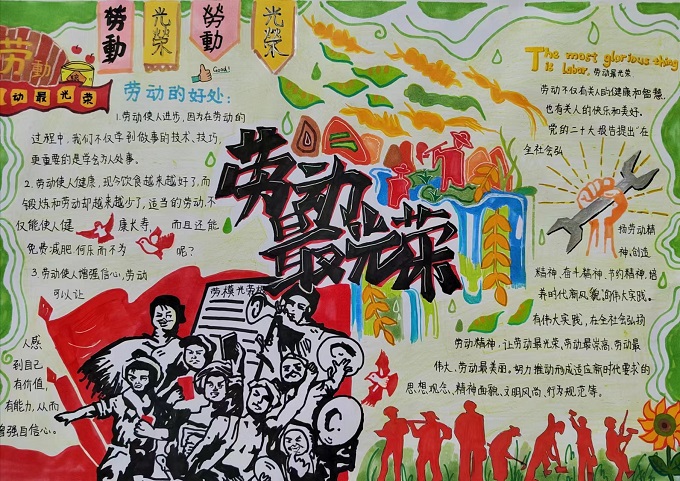 勞動
光榮
勞動
光榮
勞動
動最光荣
Good!
劳动的好处:
1.劳动使人进步,因为在劳动的
过程中,我们不仅学到做事的技术、技巧,
更重要的是学会为人处事。
2.劳动使人健康,现今饮食越来越好了,而
锻炼和劳动却越来越少了,适当的劳动,不
仅能使人健康长寿,而且还能
免费减肥,何乐而不为呢?
3.劳动使人增强信心,劳动
可以让
人感
到自己
有价值,
有能力,从而
增强自信心。
劳动
最光荣
劳模光荣榜
The most glorious thing
is labor.劳动最光荣
劳动不仅有关人的健康和智慧,
也有关人的快乐和美好。
党的二十大报告提出“在
全社会弘
扬劳动精
神、创造
精神、奋斗精神、节约精神,培
养时代新风貌”的伟大实践。
有伟大实践,在全社会弘扬
劳动精神,让劳动最光荣、劳动最崇高、劳动最
伟大、劳动最美丽,努力推动形成适应新时代要求的
思想观念、精神面貌、文明风尚、行为规范等。